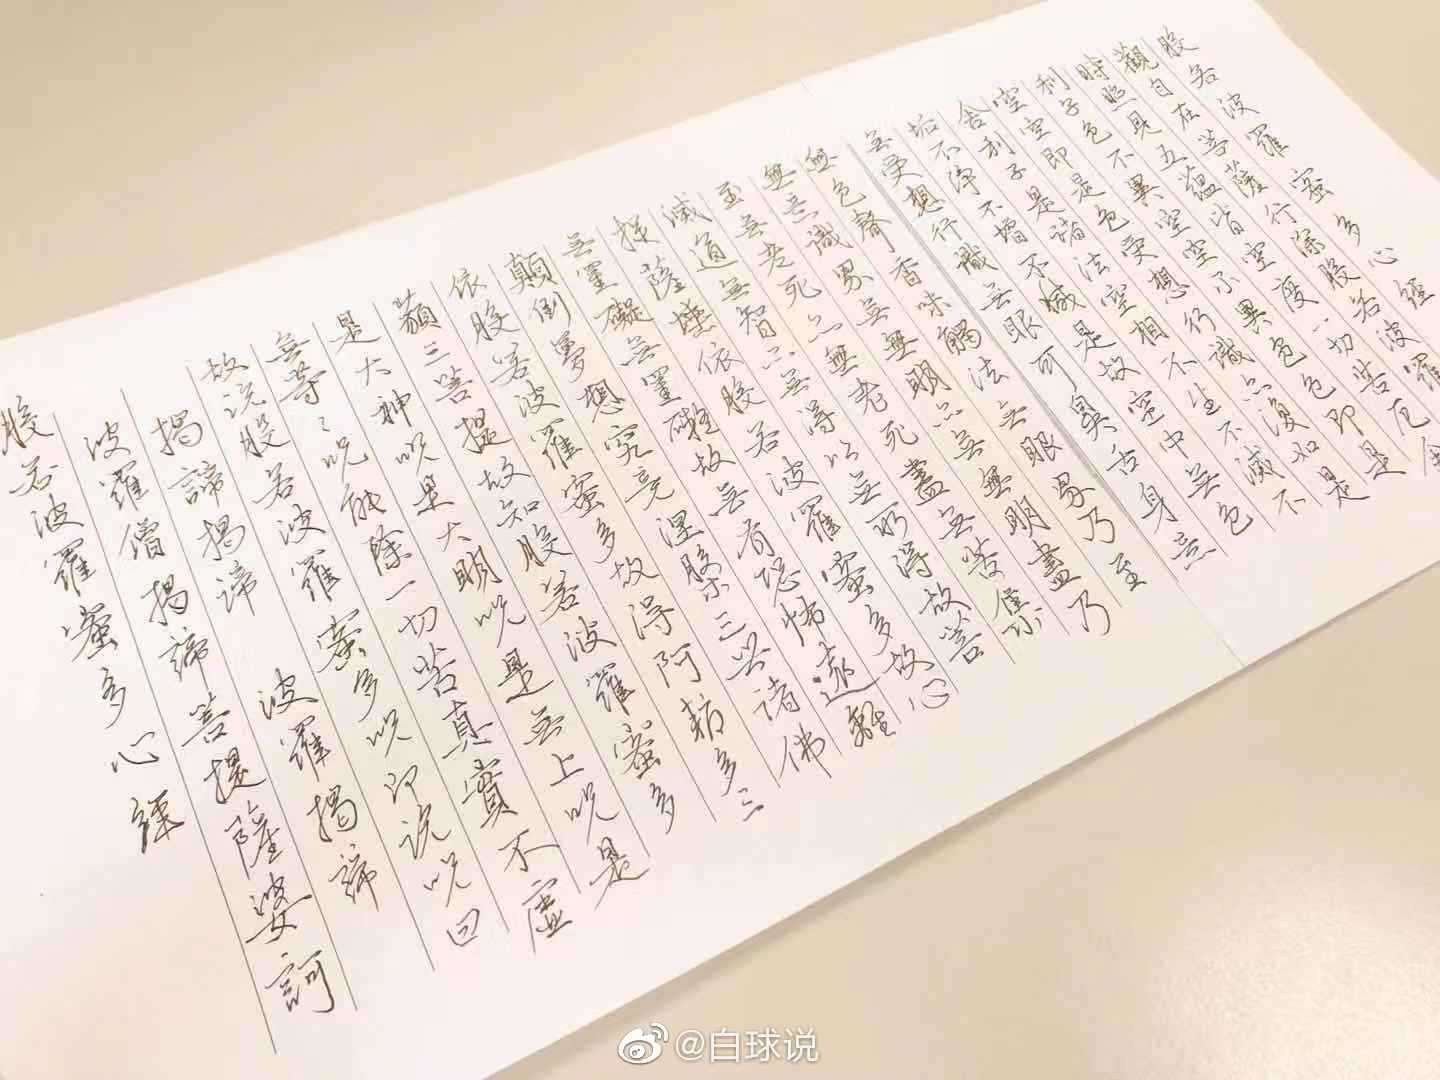 般若波羅蜜多心經
觀自在菩薩行深般若波羅
時照見五蘊皆空度一切苦厄舍
利子色不異空空不異色色即是
空空即是色受想行識亦復如是
舍利子是諸法空相不生不滅不
垢不淨不增不減是故空中無色
無受想行識無眼耳鼻舌身意
無色聲香味觸法無眼界乃至
無意識界無無明亦無無明盡乃
至無老死亦無老死盡無苦集
滅道無智亦無得以無所得故菩
提薩埵依般若波羅蜜多故心
無罣礙無罣礙故無有恐怖遠離
顛倒夢想究竟涅槃三世諸佛
依般若波羅蜜多故得阿耨多三
藐三菩提故知般若波羅蜜多
是大神咒是大明咒是無上咒是
無等々咒能除一切苦真實不虛
故説般若波羅蜜多咒即説咒曰
揭諦揭諦 波羅揭諦
波羅僧揭諦菩提薩婆訶
般若波羅蜜多心經
@白球说